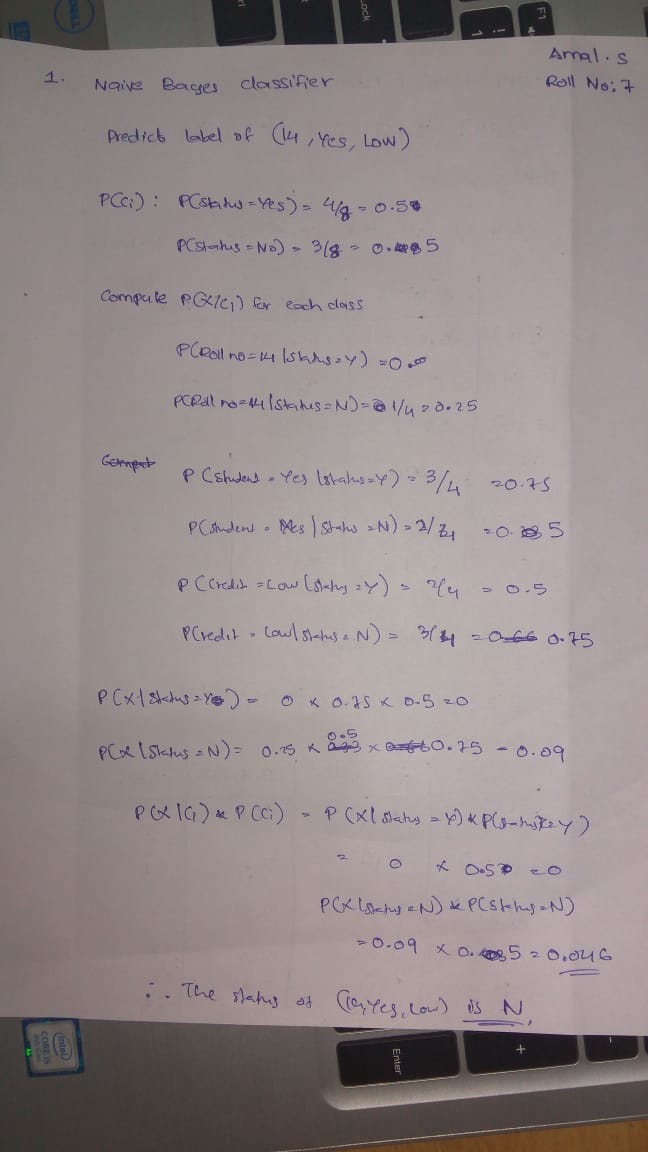 Amal. S
1. Naive Bayes classifier
Roll No: 7
Predict label of (14, Yes, Low)
P(Ci) : P(Status = Yes) = 4/8 = 0.5
P(Status = No) = 3/8 = 0.5
Compute P(X/Ci) for each class
P(Roll no = 14 | Status = Y) = 0
P(Roll no = 14 | Status = N) = 1/4 = 0.25
Comput
P (Student = Yes | Status = Y) = 3/4 = 0.75
P(Student = Yes | Status = N) = 2/4 = 0.5
P (Credit = Low | Status = Y) = 2/4 = 0.5
P(Credit = Low | Status = N) = 3/4 = 0.66 0.75
P(X | Status = Y) = 0 x 0.75 x 0.5 = 0
0.5
P(X | Status = N) = 0.25 x 0.33 x 0.75 = 0.09
P(X|Ci) * P(Ci) = P(X | Status = Y) * P(Status = Y)
= 0 x 0.5 = 0
P(X | Status = N) * P(Status = N)
= 0.09 x 0.5 = 0.046
∴ The status of (14, Yes, Low) is N.
DELL
Lock
F1
Enter
+
intel
CORE i5